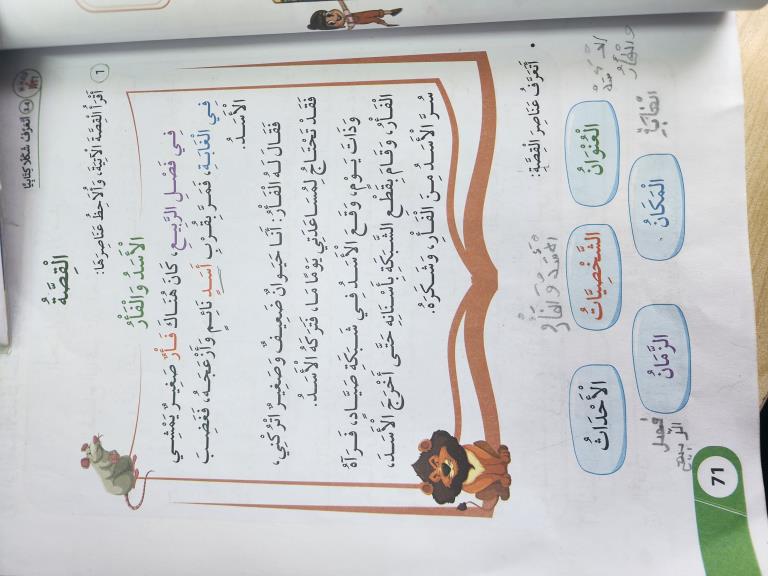 أَتَعَرَّفُ شَكْلًا كِتَابِيًّا
الْقِصَّةُ
١ أَقْرَأُ الْقِصَّةَ الْآتِيَةَ، وَأُلَاحِظُ عَنَاصِرَهَا:
الْأَسَدُ وَالْفَأْرُ
فِي فَصْلِ الرَّبِيعِ، كَانَ هُنَاكَ فَأْرٌ صَغِيرٌ يَمْشِي
فِي الْغَابَةِ، فَمَرَّ بِقُرْبِ أَسَدٍ نَائِمٍ وَأَزْعَجَهُ، فَغَضِبَ
الْأَسَدُ.
فَقَالَ لَهُ الْفَأْرُ: أَنَا حَيَوَانٌ ضَعِيفٌ وَصَغِيرٌ اتْرُكْنِي،
فَقَدْ تَحْتَاجُ لِمُسَاعَدَتِي يَوْمًا مَا، فَتَرَكَهُ الْأَسَدُ.
وَذَاتَ يَوْمٍ، وَقَعَ الْأَسَدُ فِي شَبَكَةِ صَيَّادٍ، فَرَآهُ
الْفَأْرُ، وَقَامَ بِقَطْعِ الشَّبَكَةِ بِأَسْنَانِهِ حَتَّى أَخْرَجَ الْأَسَدَ،
سُرَّ الْأَسَدُ مِنَ الْفَأْرِ، وَشَكَرَهُ.
• أَتَعَرَّفُ عَنَاصِرَ الْقِصَّةِ:
الأسد والفأر
الْعُنْوَانُ
الشَّخْصِيَّاتُ
الْأَحْدَاثُ
الأسد والفأر
الغابة
الْمَكَانُ
الزَّمَانُ
فصل
الربيع
71